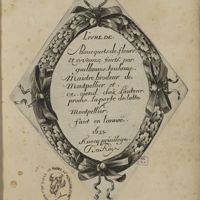 LIVRE DE
Boucquets de fleurs
et oyseaux faict par
guillaume toulouze
Maistre brodeur de
Montpellier et
ce vend chez l'auteur
proche la porte de lattes
Montpellier
faict en l'année
1655
Avecq privilege
Du Roy